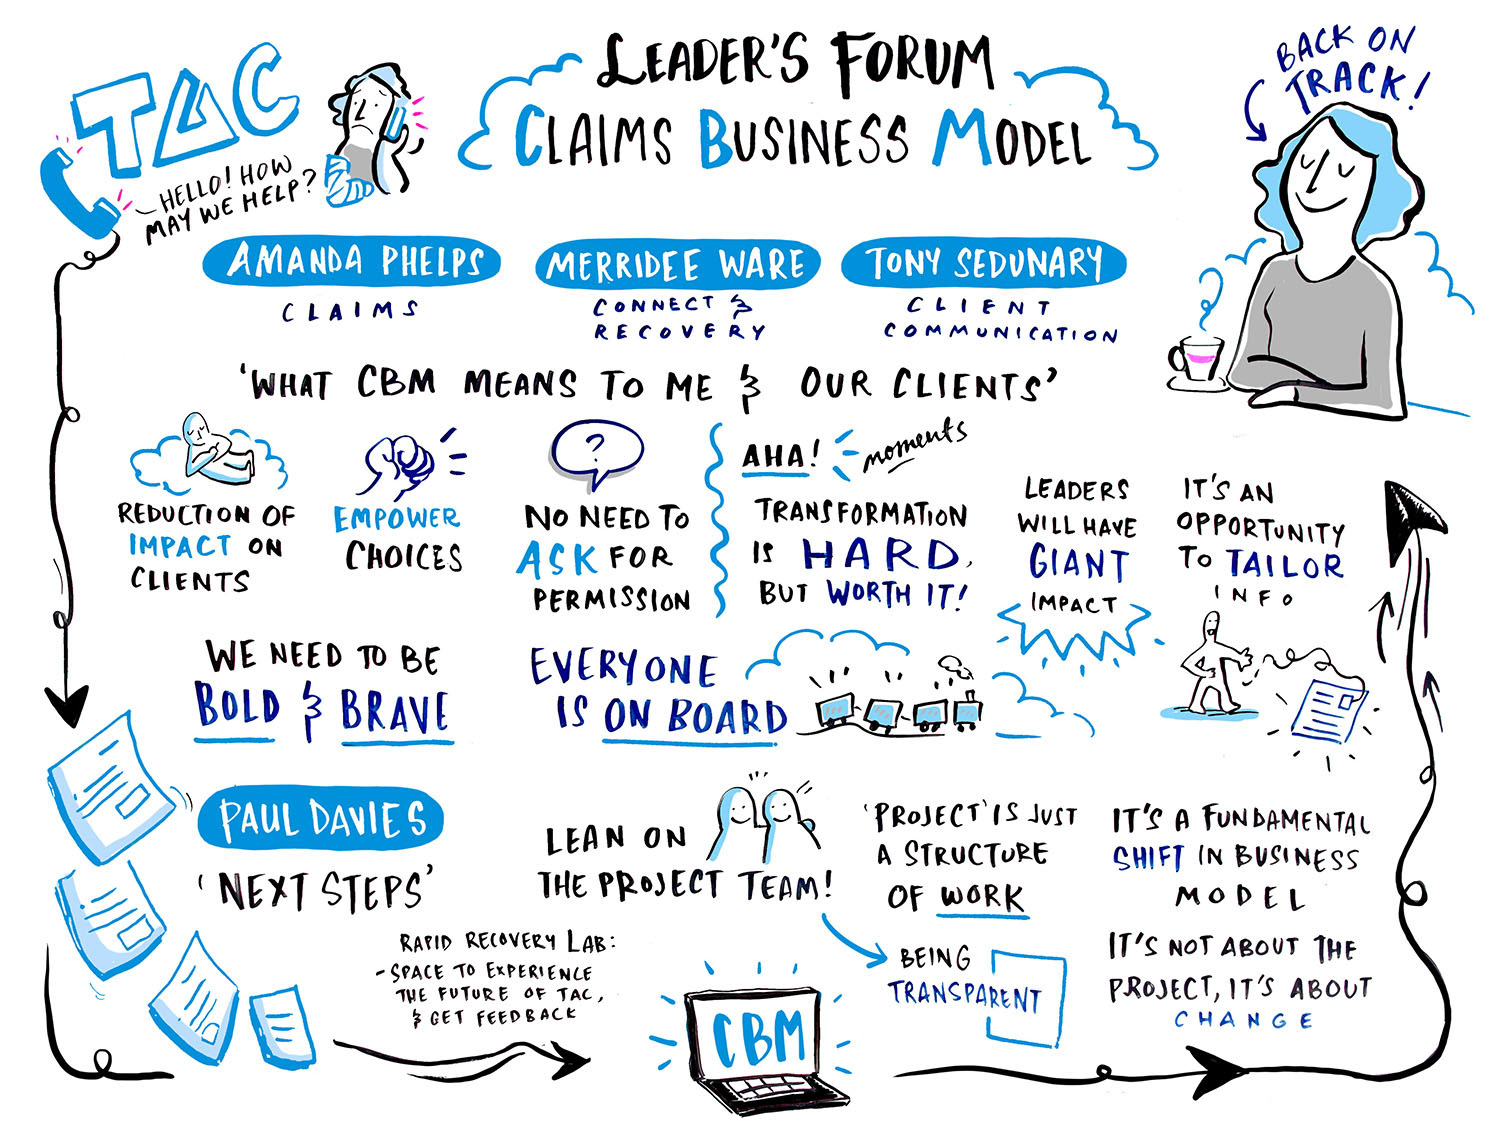 TAC
HELLO! HOW
MAY WE HELP?
LEADER'S FORUM
CLAIMS BUSINESS MODEL
BACK ON
TRACK!
AMANDA PHELPS
CLAIMS
MERRIDEE WARE
CONNECT &
RECOVERY
TONY SEDUNARY
CLIENT
COMMUNICATION
'WHAT CBM MEANS TO ME & OUR CLIENTS'
REDUCTION OF
IMPACT ON
CLIENTS
EMPOWER
CHOICES
?
NO NEED TO
ASK FOR
PERMISSION
AHA! moments
TRANSFORMATION
IS HARD,
BUT WORTH IT!
LEADERS
WILL HAVE
GIANT
IMPACT
IT'S AN
OPPORTUNITY
TO TAILOR
INFO
WE NEED TO BE
BOLD & BRAVE
EVERYONE
IS ON BOARD
PAUL DAVIES
'NEXT STEPS'
RAPID RECOVERY LAB:
- SPACE TO EXPERIENCE
THE FUTURE OF TAC,
& GET FEEDBACK
LEAN ON
THE PROJECT TEAM!
'PROJECT' IS JUST
A STRUCTURE
OF WORK
BEING
TRANSPARENT
CBM
IT'S A FUNDAMENTAL
SHIFT IN BUSINESS
MODEL
IT'S NOT ABOUT THE
PROJECT, IT'S ABOUT
CHANGE